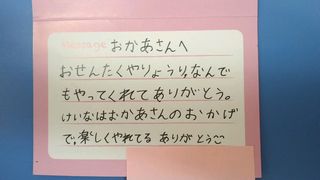 Message おかあさんへ
おせんたくやりょうり、なんで
もやってくれてありがとう。
けいなはおかあさんのおかげ
で、楽しくやれてる ありがとう